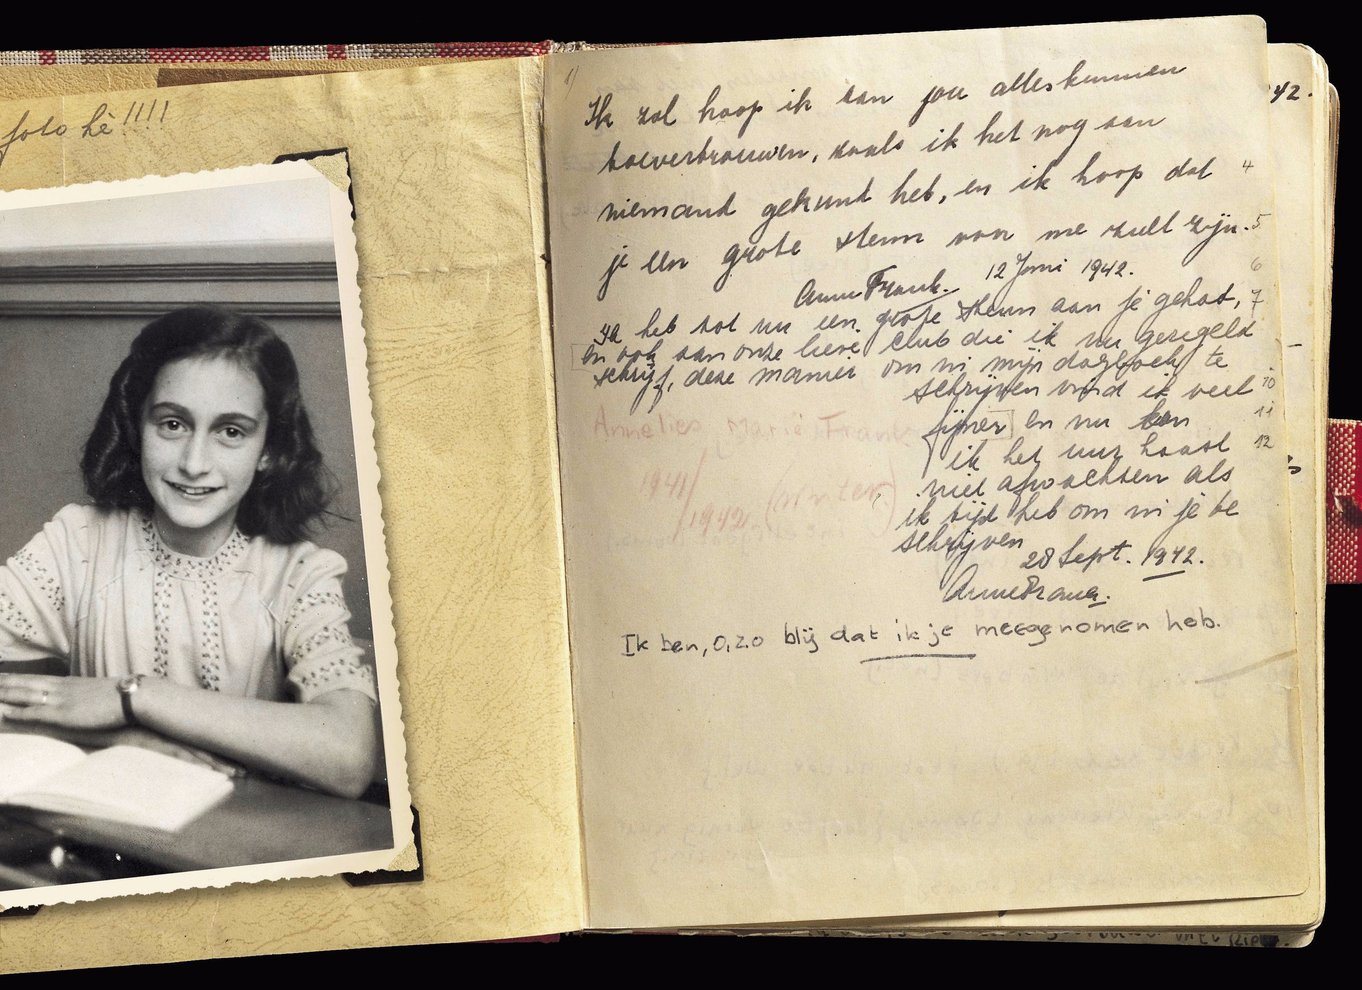 foto hè!!!!
42.
Ik zal hoop ik aan jou alles kunnen
toevertrouwen, zoals ik het nog aan
niemand gekund heb, en ik hoop dat
4
je een grote steun van me zult zijn.
5
Anne Frank. 12 Juni 1942.
6
Ik heb tot nu een grote steun aan je gehad,
7
en ook aan onze lieve club die ik nu geregeld
schrijf, deze manier om in mijn dagboek te
schrijven vind ik veel
10
fijner en nu kan
11
ik het uur haast
12
niet afwachten als
ik tijd heb om in je te
schrijven
28 Sept. 1942.
Anne Frank.
Annelies Marie Frank
1941/
/1942. (winter)
Ik ben, o, zo blij dat ik je meegenomen heb.